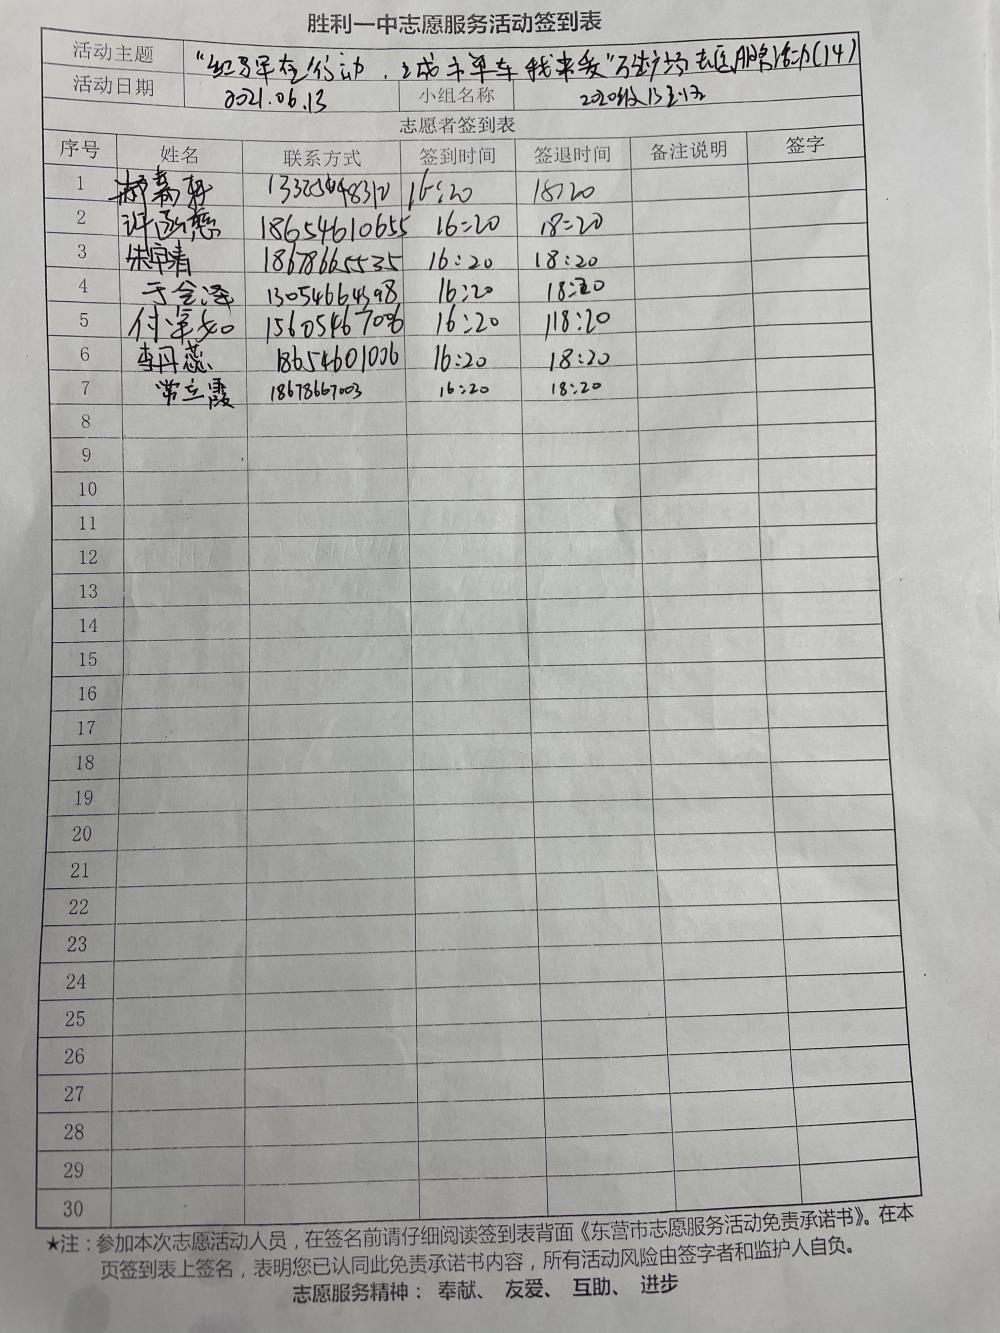 胜利一中志愿服务活动签到表
活动主题 "红马甲在行动,城市单车我来爱"万达广场志愿服务活动(14)
活动日期 2021.06.13 小组名称 2020级
志愿者签到表
序号 姓名 联系方式 签到时间 签退时间 备注说明 签字
1 16:20 18:20
2 许函慈 18654610655 16:20 18:20
3 朱宇清 18678665535 16:20 18:20
4 于金泽 13054664398 16:20 18:20
5 15605467006 16:20 18:20
6 李丹蕊 18654601006 16:20 18:20
7 常立霞 18678667003 16:20 18:20
8
9
10
11
12
13
14
15
16
17
18
19
20
21
22
23
24
25
26
27
28
29
30
★注:参加本次志愿活动人员,在签名前请仔细阅读签到表背面《东营市志愿服务活动免责承诺书》。在本
页签到表上签名,表明您已认同此免责承诺书内容,所有活动风险由签字者和监护人自负。
志愿服务精神: 奉献、 友爱、 互助、 进步